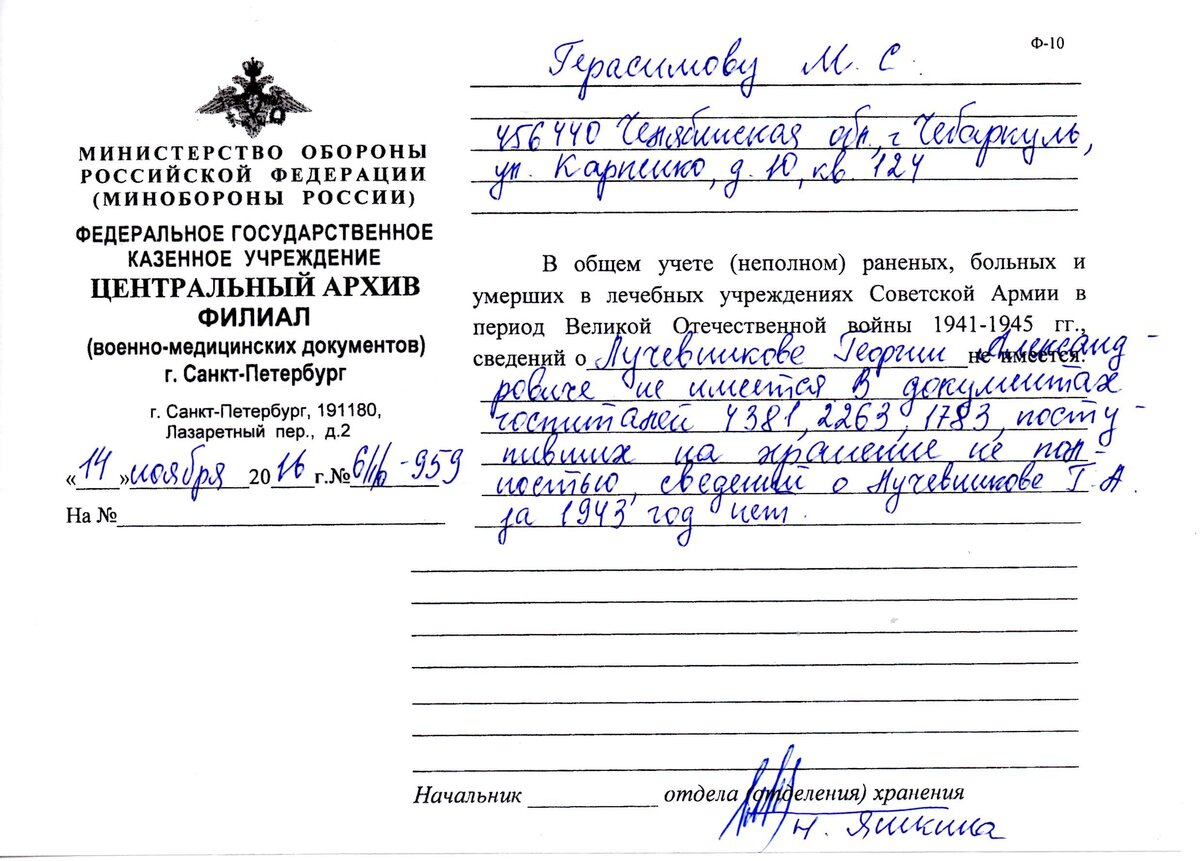 Ф-10
Герасимову М. С.
456440 Челябинская обл, г Чебаркуль,
ул. Карпенко, д. 10, кв. 124
МИНИСТЕРСТВО ОБОРОНЫ
РОССИЙСКОЙ ФЕДЕРАЦИИ
(МИНОБОРОНЫ РОССИИ)
ФЕДЕРАЛЬНОЕ ГОСУДАРСТВЕННОЕ
КАЗЕННОЕ УЧРЕЖДЕНИЕ
ЦЕНТРАЛЬНЫЙ АРХИВ
ФИЛИАЛ
(военно-медицинских документов)
г. Санкт-Петербург
г. Санкт-Петербург, 191180,
Лазаретный пер., д.2
«14» ноября 2016 г.№ -959
На №
В общем учете (неполном) раненых, больных и
умерших в лечебных учреждениях Советской Армии в
период Великой Отечественной войны 1941-1945 гг.,
сведений о Лучевникове Георгии Александ- не имеется.
ровиче не имеется. В документах
госпиталей 4381, 2263, 1783, посту-
пивших на хранение не пол-
ностью, сведений о Лучевникове Г. А.
за 1943 год нет.
Начальник отдела (отделения) хранения
Н. Яшкина